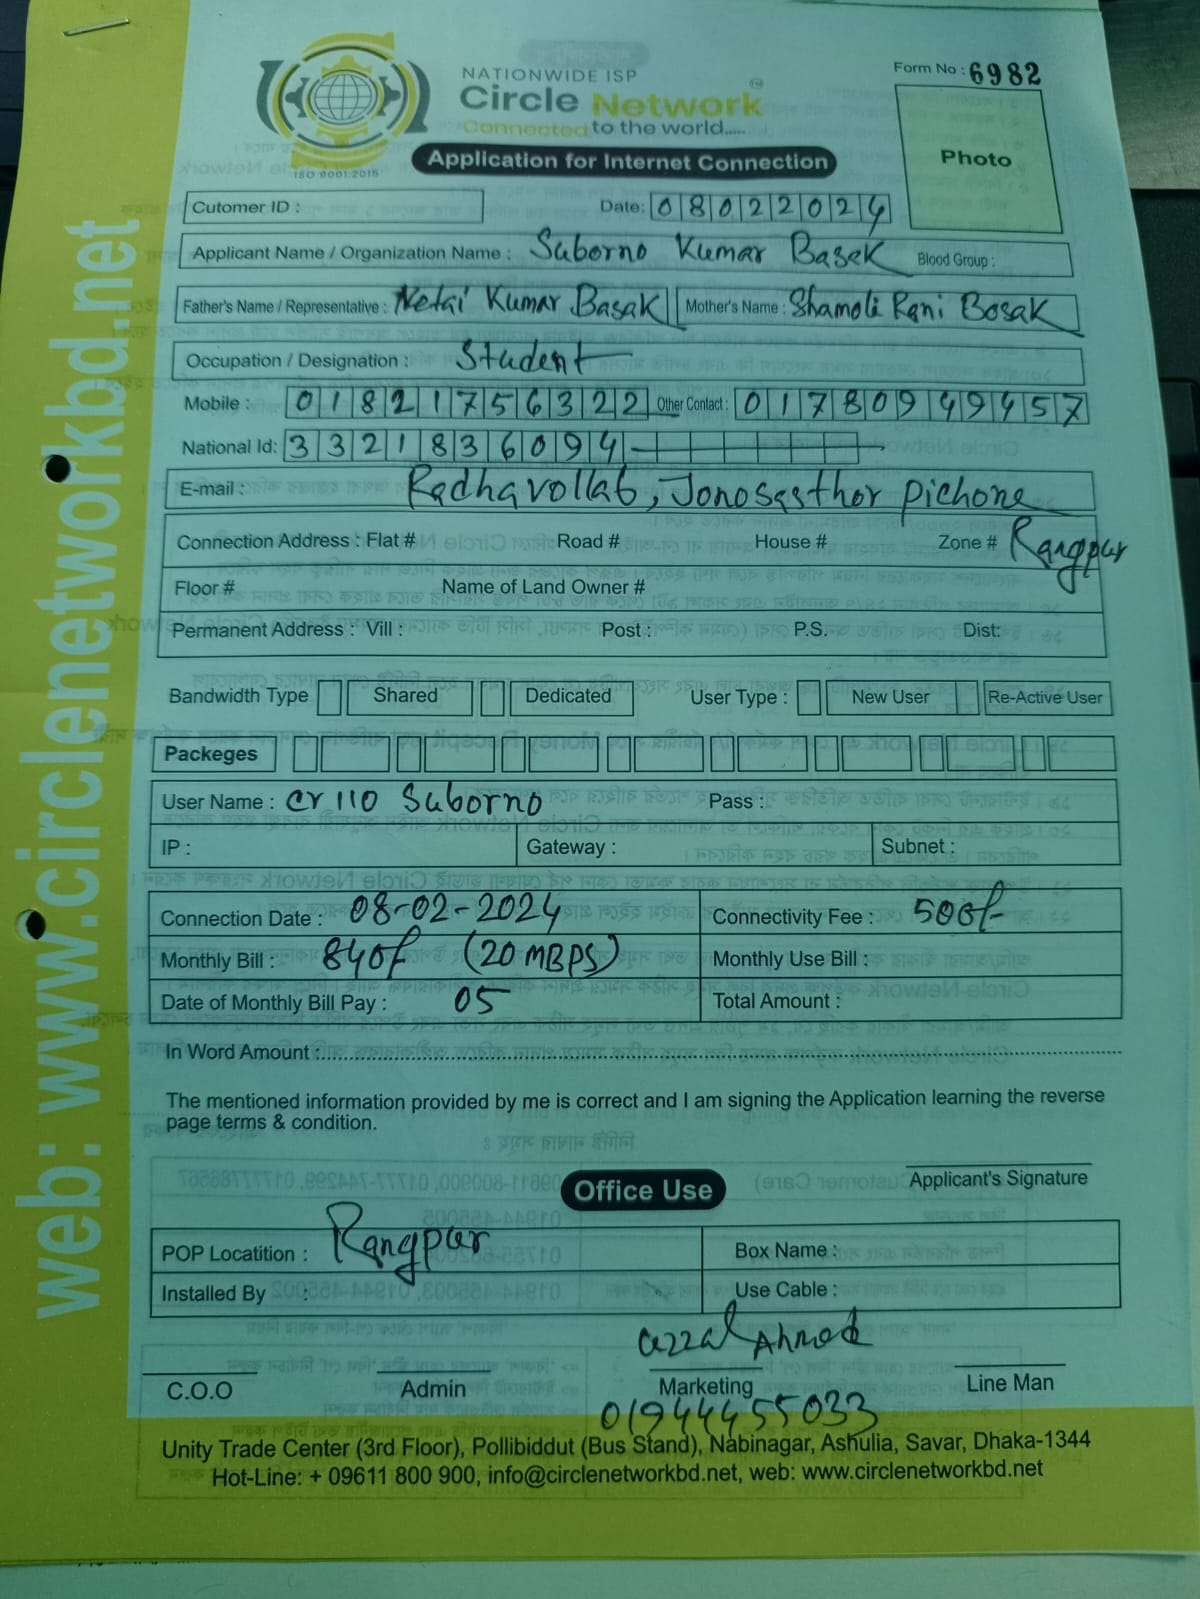 NATIONWIDE ISP
Circle Network
Connected to the world.....
ISO 9001:2015
Form No : 6982
Photo
Application for Internet Connection
Cutomer ID :
Date: 08022024
Applicant Name / Organization Name : Suborno Kumar Basak
Blood Group :
Father's Name / Representative : Netai Kumar Basak
Mother's Name : Shamoli Rani Bosak
Occupation / Designation : Student
Mobile : 01821756322
Other Contact : 01780949457
National Id: 3321836094
E-mail : Radhavollab, Jonosasthor pichone
Connection Address : Flat # Road # House # Zone # Rangpur
Floor # Name of Land Owner #
Permanent Address : Vill : Post : P.S. Dist:
Bandwidth Type Shared Dedicated User Type : New User Re-Active User
Packeges
User Name : cr110 Suborno Pass :
IP : Gateway : Subnet :
Connection Date : 08-02-2024 Connectivity Fee : 500/-
Monthly Bill : 840/- (20 MBPS) Monthly Use Bill :
Date of Monthly Bill Pay : 05 Total Amount :
In Word Amount :
The mentioned information provided by me is correct and I am signing the Application learning the reverse
page terms & condition.
Applicant's Signature
Office Use
POP Locatition : Rangpur Box Name :
Installed By : Use Cable :
Ahmed
C.O.O Admin Marketing Line Man
01944455033
Unity Trade Center (3rd Floor), Pollibiddut (Bus Stand), Nabinagar, Ashulia, Savar, Dhaka-1344
Hot-Line: + 09611 800 900, info@circlenetworkbd.net, web: www.circlenetworkbd.net
web: www.circlenetworkbd.net